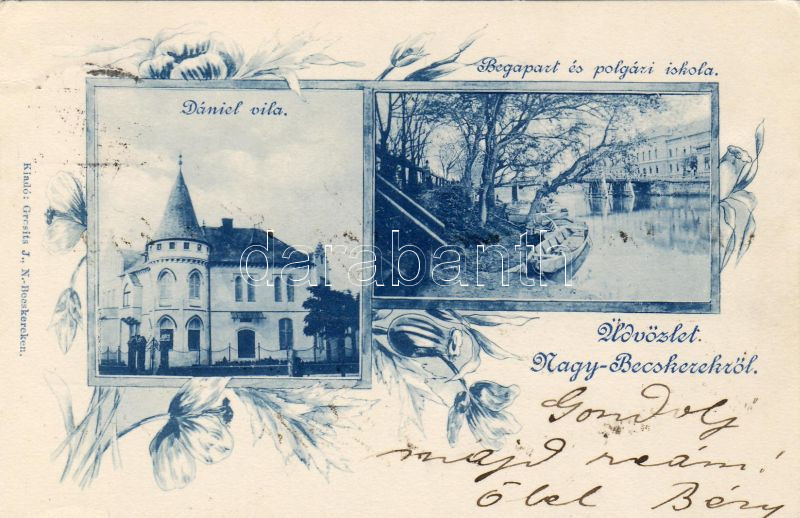 Begapart és polgári iskola.
Dániel vila.
darabanth
Kiadó: Gresits J., N.-Becskereken.
Üdvözlet.
Nagy-Becskerekről.
Gondolj
majd reám!
Ölel Béry